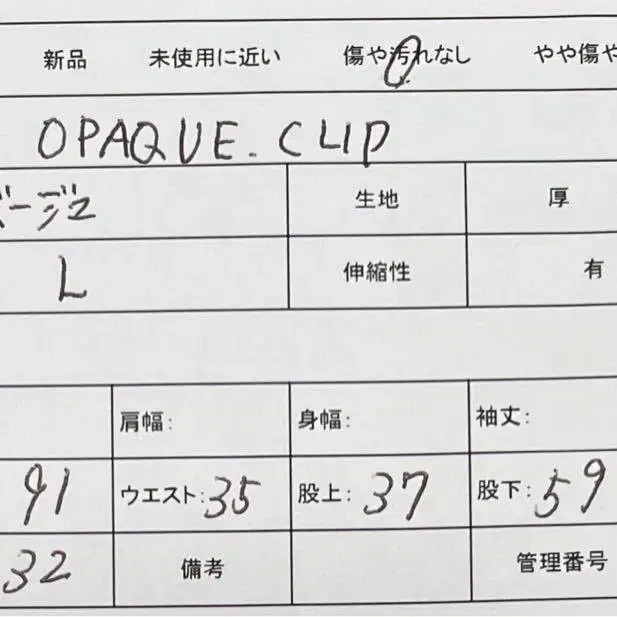 新品 未使用に近い 傷や汚れなし やや傷や
OPAQUE.CLIP
ベージュ 生地 厚
L 伸縮性 有
肩幅: 身幅: 袖丈:
91 ウエスト:35 股上:37 股下:59
32 備考 管理番号